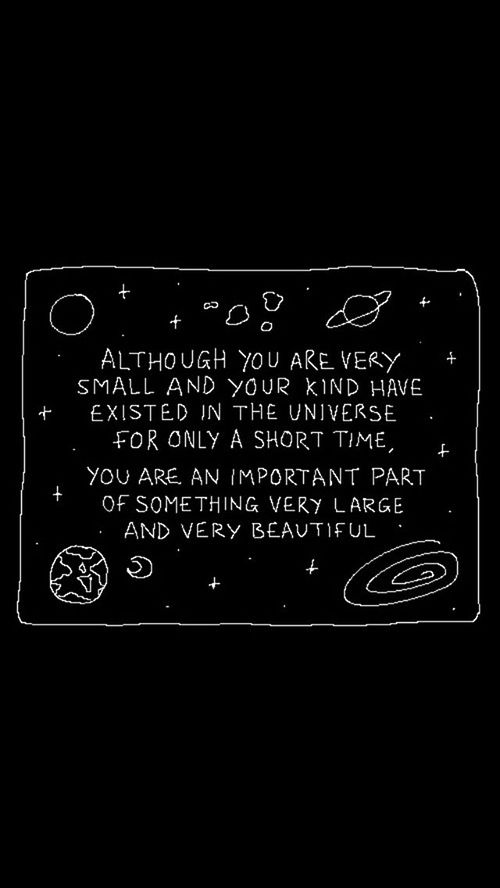 ALTHOUGH YOU ARE VERY
SMALL AND YOUR KIND HAVE
EXISTED IN THE UNIVERSE
FOR ONLY A SHORT TIME,
YOU ARE AN IMPORTANT PART
OF SOMETHING VERY LARGE
AND VERY BEAUTIFUL